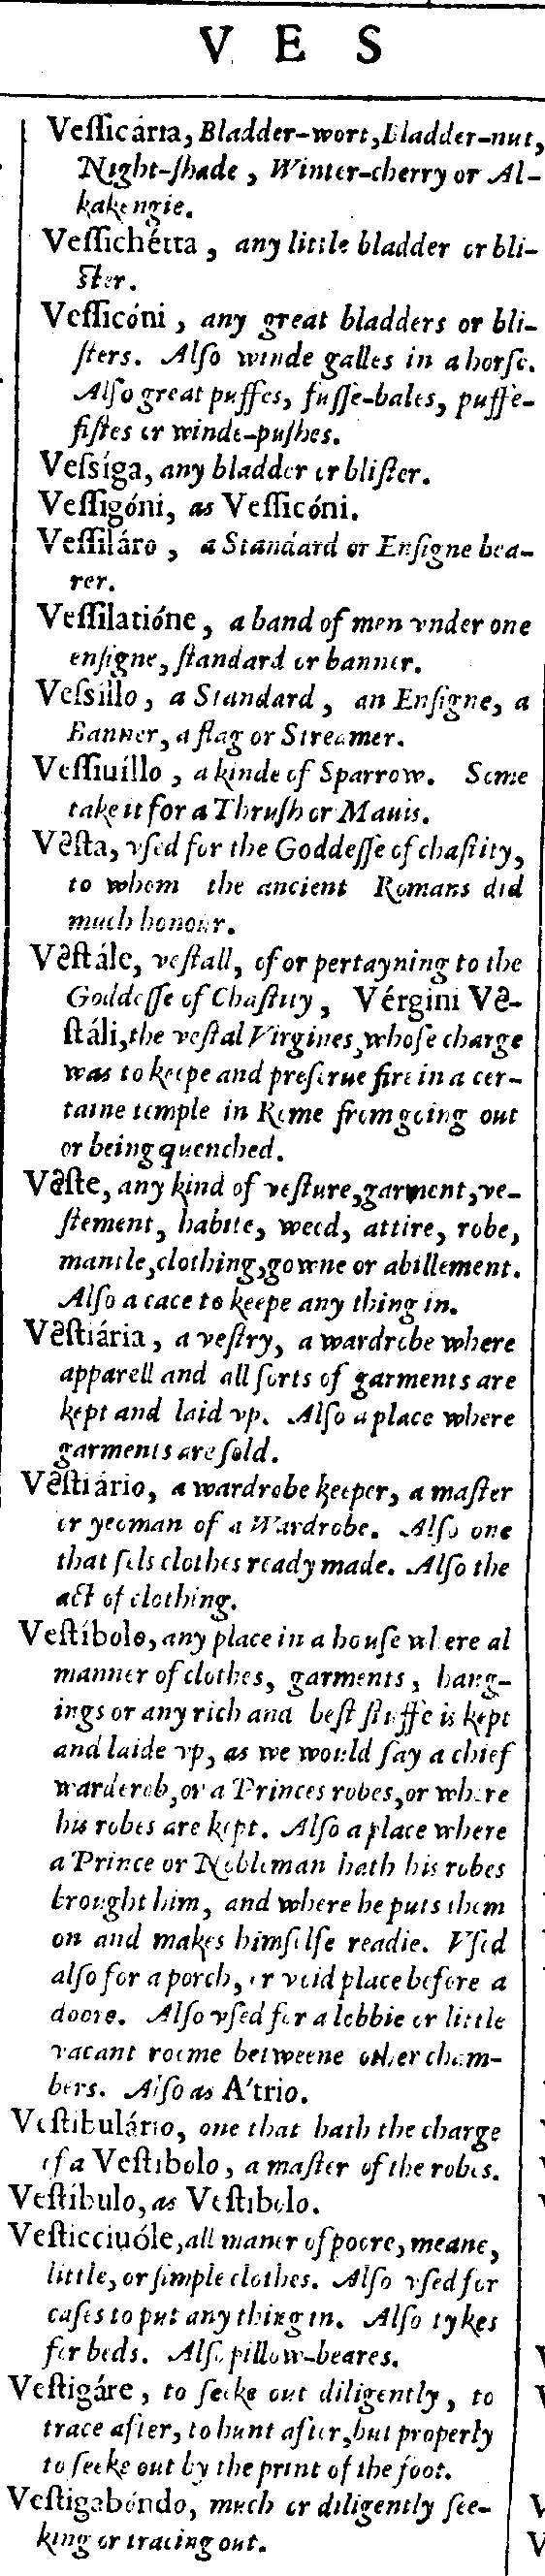 V E S
Veſſicária, Bladder-wort, bladder-nut,
Night-ſhade, Winter-cherry or Al-
kakengie.
Veſſichétta, any little bladder or bli-
ſter.
Veſſicóni, any great bladders or bli-
ſters. Alſo winde galles in a horſe.
Alſo great puffes, fuſſe-bales, puffe-
fiſtes or winde-puſhes.
Veſsíga, any bladder or bliſter.
Veſſigóni, as Veſſicóni.
Veſſiláro, a Standard or Enſigne bea-
rer.
Veſſilatióne, a band of men vnder one
enſigne, ſtandard or banner.
Veſsíllo, a Standard, an Enſigne, a
Banner, a flag or Streamer.
Veſſiuíllo, a kinde of Sparrow. Some
take it for a Thruſh or Mauis.
Vẽſta, vſed for the Goddeſſe of chaſtity,
to whom the ancient Romans did
much honour.
Vẽſtále, veſtall, of or pertayning to the
Goddeſſe of Chaſtity, Vérgini Vẽ-
ſtáli, the veſtal Virgines, whoſe charge
was to keepe and preſerue fire in a cer-
taine temple in Rome from going out
or being quenched.
Vẽſte, any kind of veſture, garment, ve-
ſtement, habite, weed, attire, robe,
mantle, clothing, gowne or abillement.
Alſo a cace to keepe any thing in.
Vẽſtiária, a veſtry, a wardrobe where
apparell and all ſorts of garments are
kept and laid vp. Alſo a place where
garments are ſold.
Vẽſtiário, a wardrobe keeper, a maſter
or yeoman of a Wardrobe. Alſo one
that ſels clothes ready made. Alſo the
act of clothing.
Veſtíbolo, any place in a houſe where al
manner of clothes, garments, hang-
ings or any rich and beſt ſtuffe is kept
and laide vp, as we would ſay a chief
wardereb, or a Princes robes, or where
his robes are kept. Alſo a place where
a Prince or Nobleman hath his robes
brought him, and where he puts them
on and makes himſelfe readie. Vſed
alſo for a porch, or void place before a
doore. Alſo vſed for a lobbie or little
vacant roome betweene other cham-
bers. Alſo as A'trio.
Veſtibulário, one that hath the charge
of a Veſtibolo, a maſter of the robes.
Veſtíbulo, as Veſtibolo.
Veſticciuóle, all maner of poore, meane,
little, or ſimple clothes. Alſo vſed for
caſes to put any thing in. Alſo tykes
for beds. Alſo pillow-beares.
Veſtigáre, to ſeeke out diligently, to
trace after, to hunt after, but properly
to ſeeke out by the print of the foot.
Veſtigabóndo, much or diligently ſee-
king or tracing out.